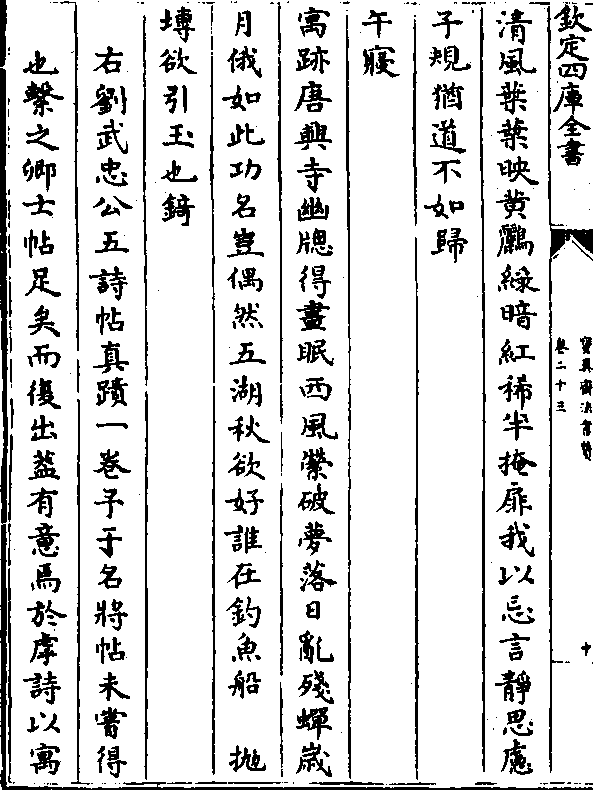 欽定四庫全書
寶真齋法書贊
卷二十三
十
清風葉葉映黄鸝緑暗紅稀半掩扉我以忘言靜思慮
子規猶道不如歸
午寢
寓跡唐興寺幽牕得晝眠西風縈破夢落日亂殘蟬歲
月俄如此功名豈偶然五湖秋欲好誰在釣魚船　拋
塼欲引玉也錡
右劉武忠公五詩帖真蹟一卷予于名將帖未嘗得
也繫之卿士帖足矣而復出葢有意焉於虖詩以寓